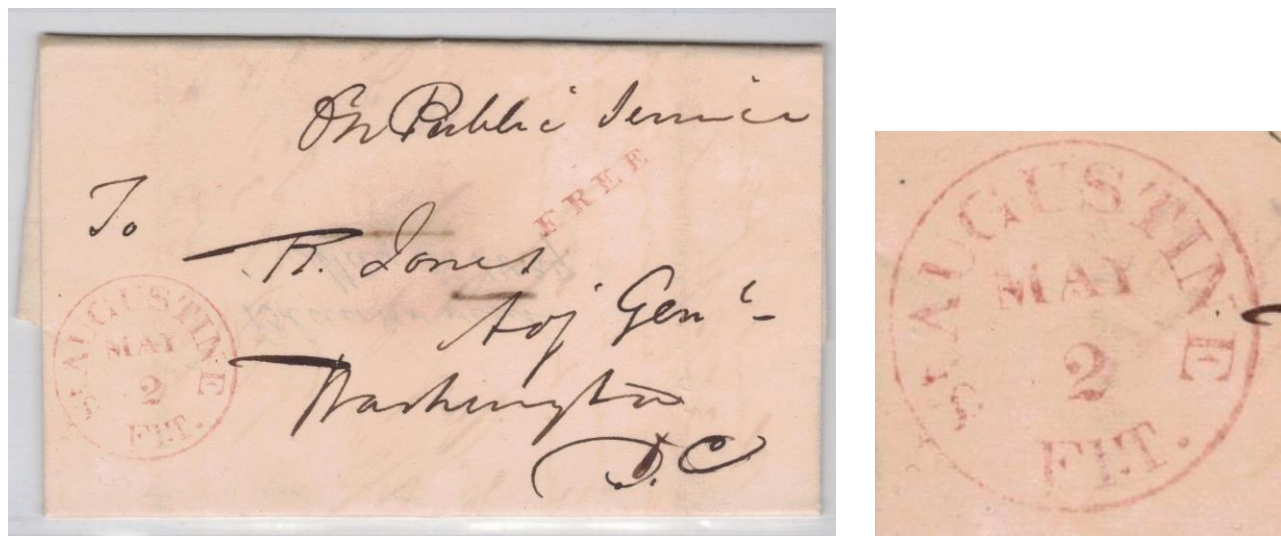 On Public Service
FREE
To
R. Jones
Adj Genl
Washington
D.C
ST. AUGUSTINE
MAY
2
Fl.T.
ST. AUGUSTINE
MAY
2
Fl.T.